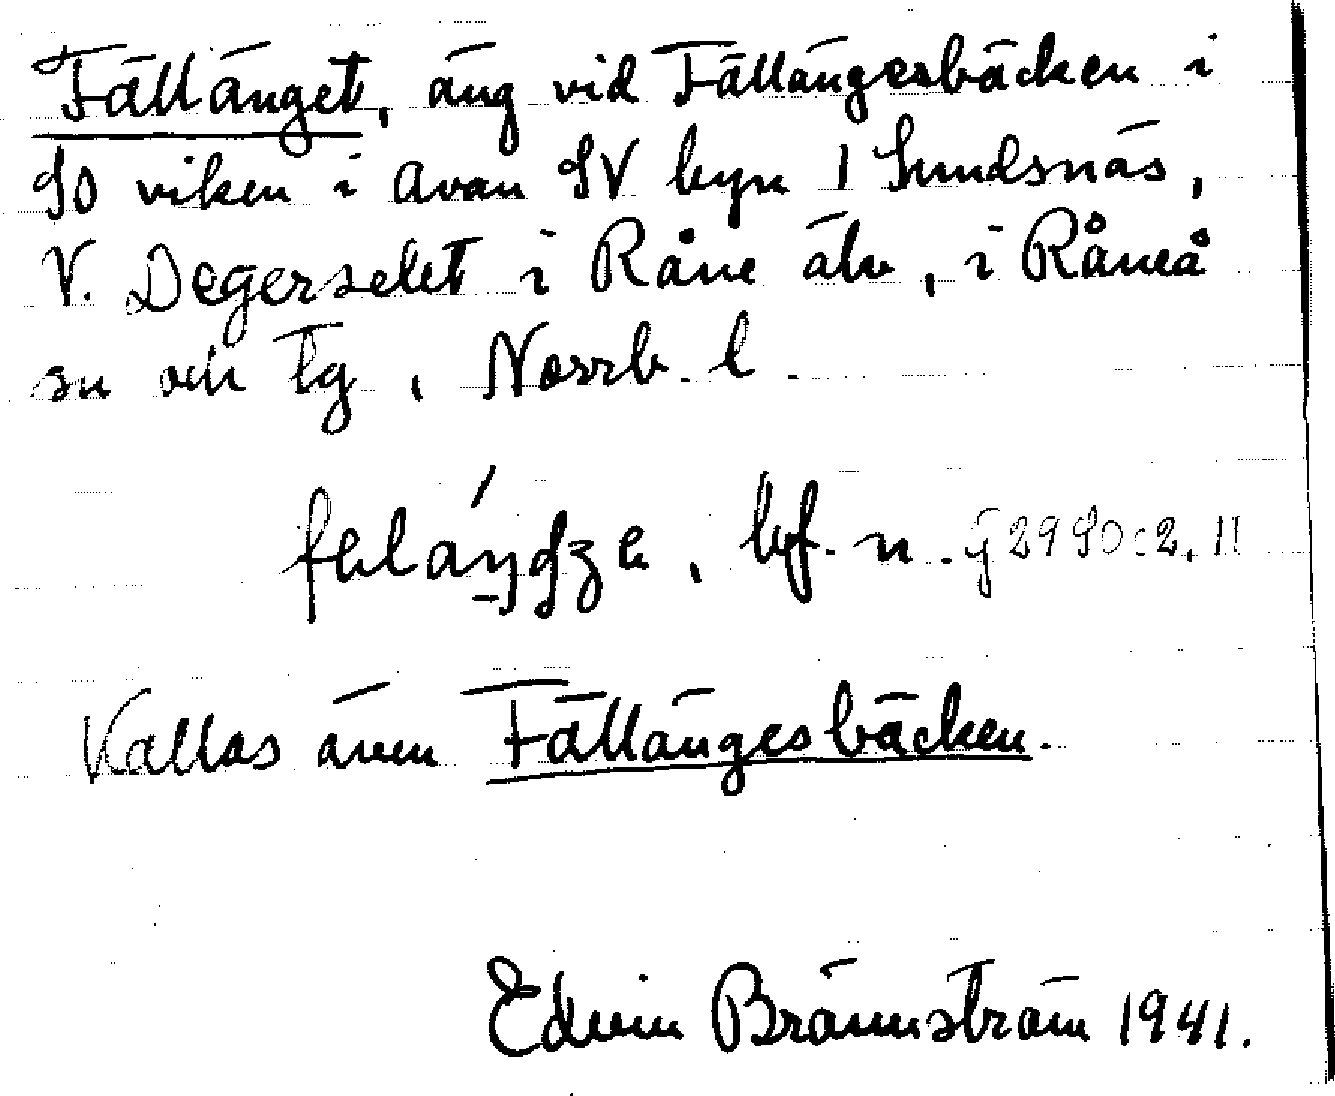 Fällänget, äng vid Fällängesbäcken i
SO viken i avan SV byn 1 Sundsnäs,
V. Degerselet i Råne älv, i Råneå
sn och tg, Norrb. l.
byf. n. G 29 SO:2, 11
Kallas även Fällängesbäcken.
Edvin Brännström 1941.